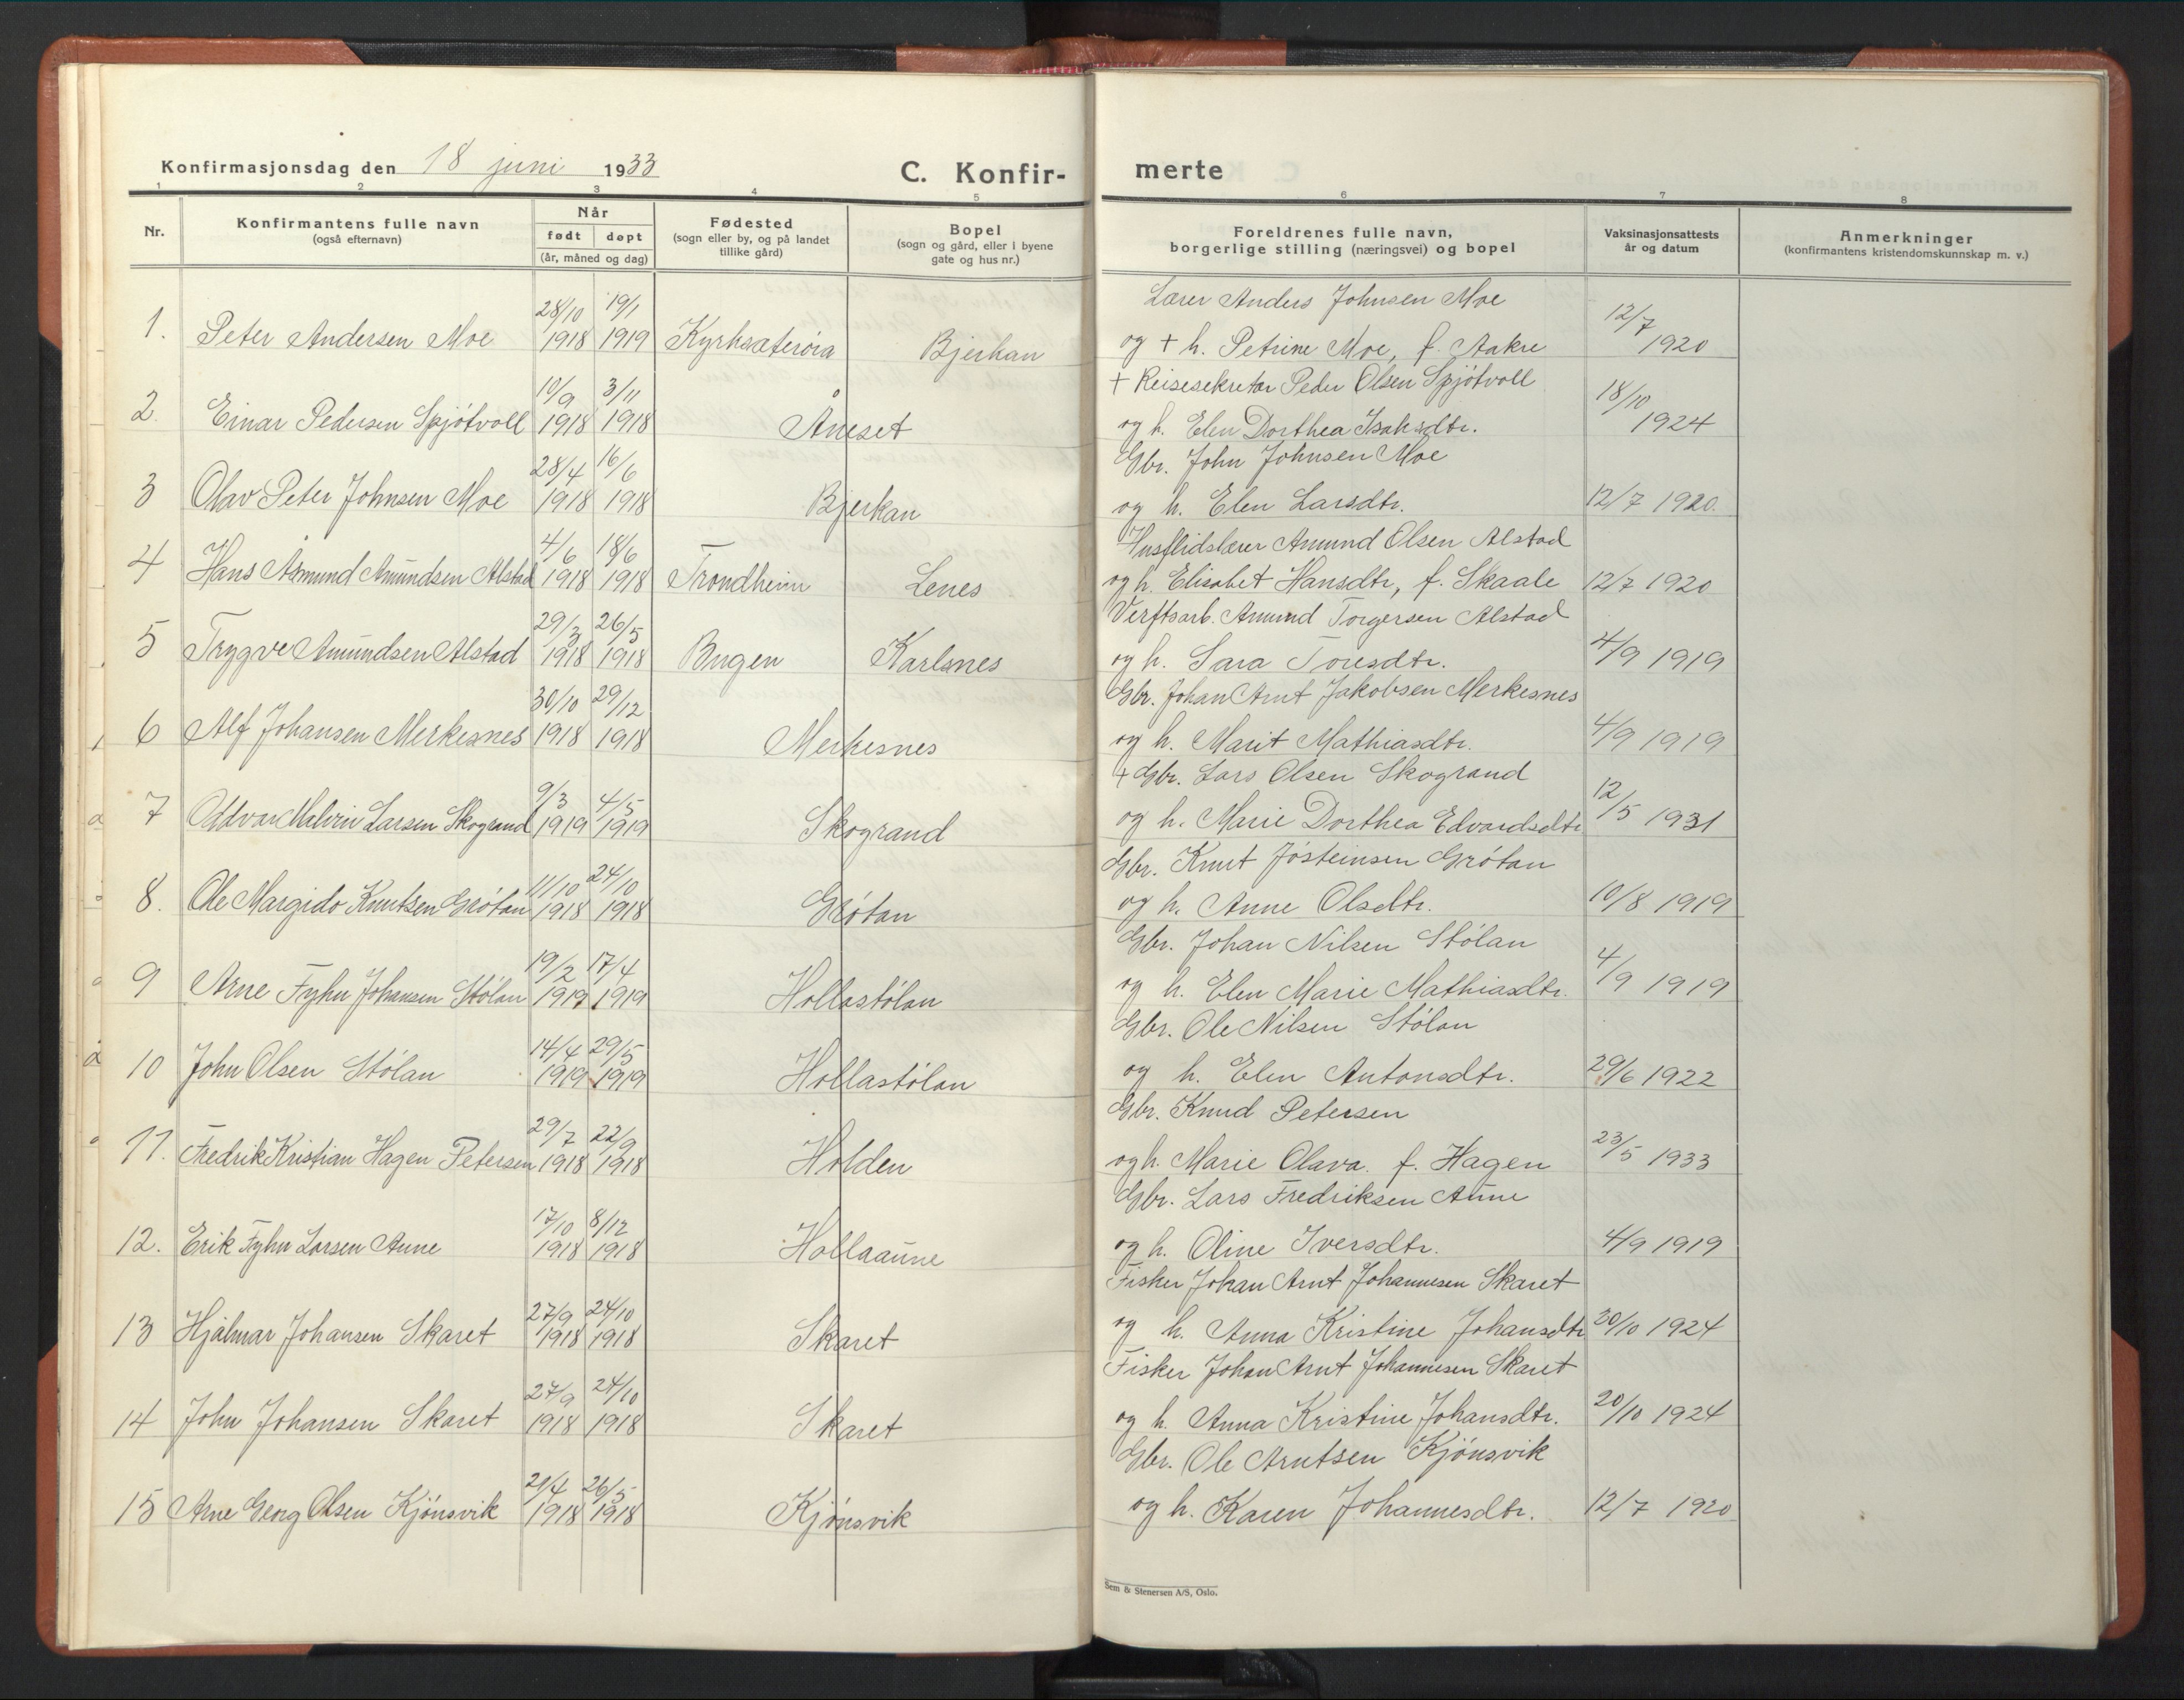 Konfirmasjonsdag den 18 juni 1933
C. Konfir-
merte
1 2 3 4 5 6 7 8
Nr.
Konfirmantens fulle navn
(også efternavn)
Når
født døpt
(år, måned og dag)
Fødested
(sogn eller by, og på landet
tillike gård)
Bopel
(sogn og gård, eller i byene
gate og hus nr.)
Foreldrenes fulle navn,
borgerlige stilling (næringsvei) og bopel
Vaksinasjonsattests
år og datum
Anmerkninger
(konfirmantens kristendomskunnskap m. v.)
28/10 19/1 Lærer Anders Johnsen Moe 12/7
1. Peter Andersen Moe 1918 1919 Kyrksæterøra Bjerkan og + h. Petrine Moe, f. Aakre 1920
10/9 3/11 + Reisesekretær Peder Olsen Spjótvoll 18/10
2. Einar Pedersen Spjótvoll 1918 1918 Åneset og h. Elen Dorthea Isaksdtr. 1924
28/4 16/6 Gbr. John Johnsen Moe
3 Olav Peter Johnsen Moe 1918 1918 Bjerkan og h. Elen Larsdtr. 12/7 1920.
4/6 18/6 Husflidslærer Amund Olsen Alstad
4 Hans Asmund Amundsen Alstad 1918 1918 Trondheim Lenes og h. Elisabet Hansdtr, f. Skaale 12/7 1920
29/3 26/5 Verftsarb. Amund Torgersen Alstad
5 Trygve Amundsen Alstad 1918 1918 Bugen Karlsnes og h. Sara Toresdtr. 4/9 1919
30/10 29/12 Gbr. Johan Arnt Jakobsen Merkesnes
6 Alf Johansen Merkesnes 1918 1918 Merkesnes og h. Marit Mathiasdtr. 4/9 1919
9/3 4/5 + Gbr. Lars Olsen Skogrand
7 Oddvar Malvin Larsen Skogrand 1919 1919 Skogrand og h. Marie Dorthea Edvardsdtr 12/5 1931
11/10 24/10 Gbr. Knut Jósteinsen Grótan
8. Ole Margido Knutsen Grótan 1918 1918 Grótan og h. Anne Olsdtr. 10/8 1919
19/2 17/4 Gbr. Johan Nilsen Stólan
9 Arne Fyhn Johansen Stólan 1919 1919 Hollastólan og h. Elen Marie Mathiasdtr. 4/9 1919
14/4 29/5 Gbr. Ole Nilsen Stólan
10 John Olsen Stólan 1919 1919 Hollastólan og h. Elen Antonsdtr. 29/6 1922
29/7 22/9 Gbr. Knud Petersen
11. Fredrik Kristian Hagen Petersen 1918 1918 Holden og h. Marie Olava. f. Hagen 23/5 1933
17/10 8/12 Gbr. Lars Fredriksen Aune
12. Erik Fyhn Larsen Aune 1918 1918 Hollaaune og h. Oline Iversdtr. 4/9 1919
27/9 24/10 Fisker Johan Arnt Johannesen Skaret
13 Hjalmar Johansen Skaret 1918 1918 Skaret og h. Anna Kristine Johansdtr 20/10 1924
27/9 24/10 Fisker Johan Arnt Johannesen Skaret
14 John Johansen Skaret 1918 1918 Skaret og h. Anna Kristine Johansdtr. 20/10 1924
21/4 26/5 Gbr. Ole Arntsen Kjónsvik
15 Arne Georg Olsen Kjónsvik 1918 1918 Kjónsvik og h. Karen Johannesdtr. 12/7 1920
Sem & Stenersen A/S, Oslo.